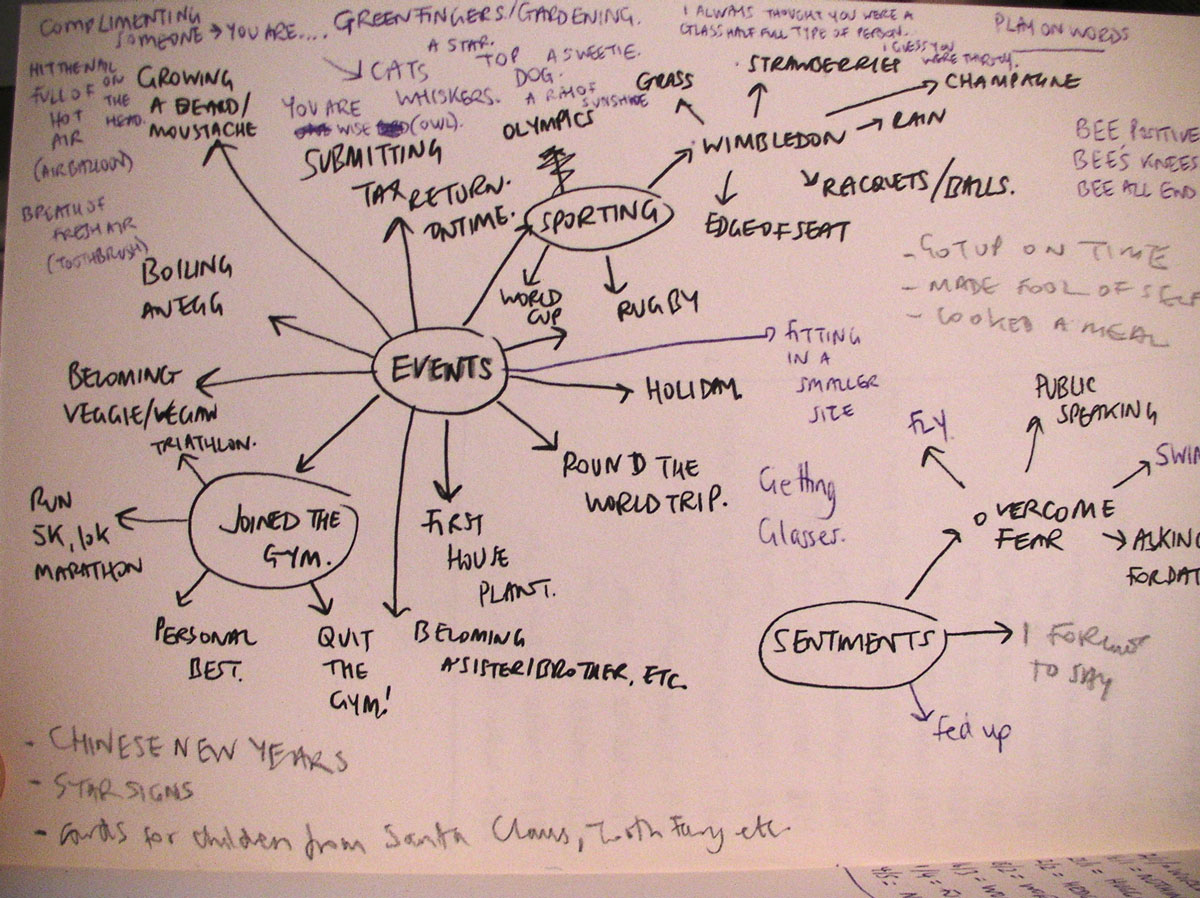 COMPLIMENTING
SOMEONE → YOU ARE....
GREENFINGERS/GARDENING.
I ALWAYS THOUGHT YOU WERE A
GLASS HALF FULL TYPE OF PERSON..
I GUESS YOU
WERE THIRSTY.
PLAY ON WORDS
HIT THE NAIL
ON
THE
HEAD.
FULL OF
HOT
AIR
(AIR BALLOON)
BREATH OF
FRESH AIR
(TOOTHBRUSH)
A STAR.
TOP
DOG.
A SWEETIE.
A RAY OF
SUNSHINE
CATS
WHISKERS.
YOU ARE
WISE (OWL).
GROWING
A BEARD/
MOUSTACHE
SUBMITTING
TAX RETURN.
ON TIME.
OLYMPICS
SPORTING
GRASS
STRAWBERRIES
CHAMPAGNE
WIMBLEDON
RAIN
RACQUETS/BALLS.
EDGE OF SEAT
WORLD
CUP
RUGBY
BEE POSITIVE
BEE'S KNEES
BEE ALL END
- GOT UP ON TIME
- MADE FOOL OF SELF
- COOKED A MEAL
BOILING
AN EGG
EVENTS
FITTING
IN A
SMALLER
SIZE
BECOMING
VEGGIE/VEGAN
HOLIDAY.
TRIATHLON.
RUN
5K, 10K
MARATHON
JOINED THE
GYM.
PERSONAL
BEST.
QUIT
THE
GYM!
BECOMING
A SISTER/BROTHER, ETC.
FIRST
HOUSE
PLANT.
ROUND THE
WORLD TRIP.
Getting
Glasses.
FLY.
PUBLIC
SPEAKING
SWIM
OVERCOME
FEAR
ASKING
FOR DAT
SENTIMENTS
I FORGOT
TO SAY
Fed up
- CHINESE NEW YEARS
- STAR SIGNS
- Cards for children from Santa Claus, Tooth Fairy etc